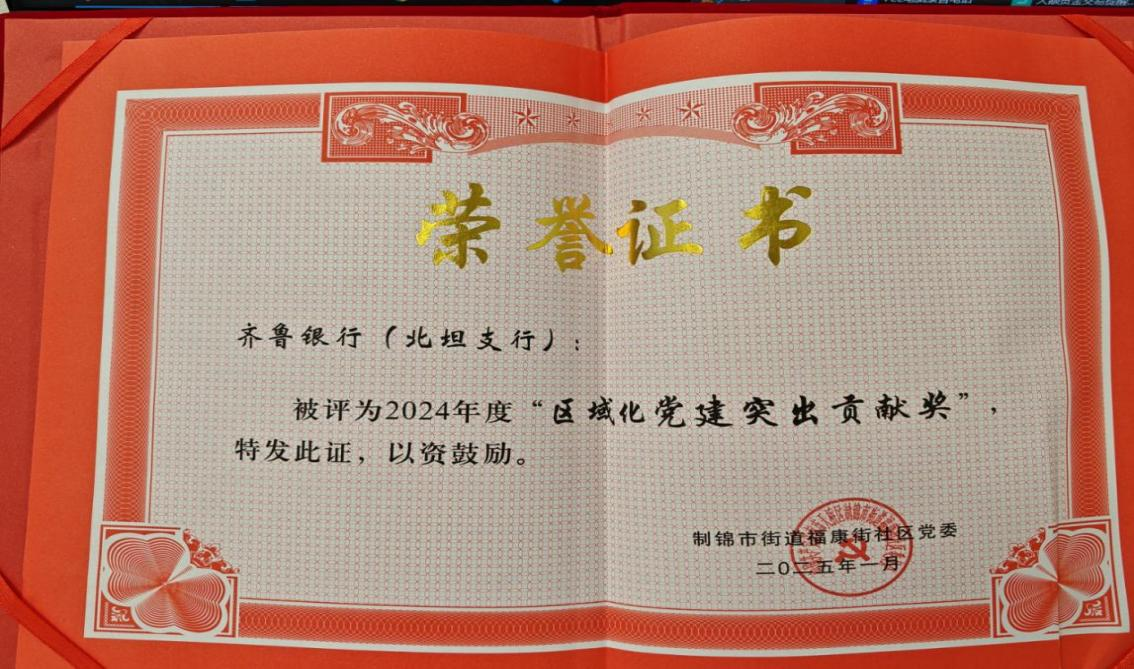 荣誉证书
齐鲁银行（北坦支行）：
被评为2024年度“区域化党建突出贡献奖”，
特发此证，以资鼓励。
制锦市街道福康街社区党委
二〇二五年一月